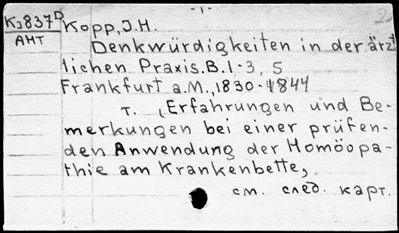 - 1 -
K3837D Kopp, J.H.
AHT Denkwürdigkeiten in der ärzt
lichen Praxis. B.1-3, 5
Frankfurt a.M., 1830-1844
т. „Erfahrungen und Be-
merkungen bei einer prüfen-
den Anwendung der Homöopa-
thie am Krankenbette,
см. след. карт.